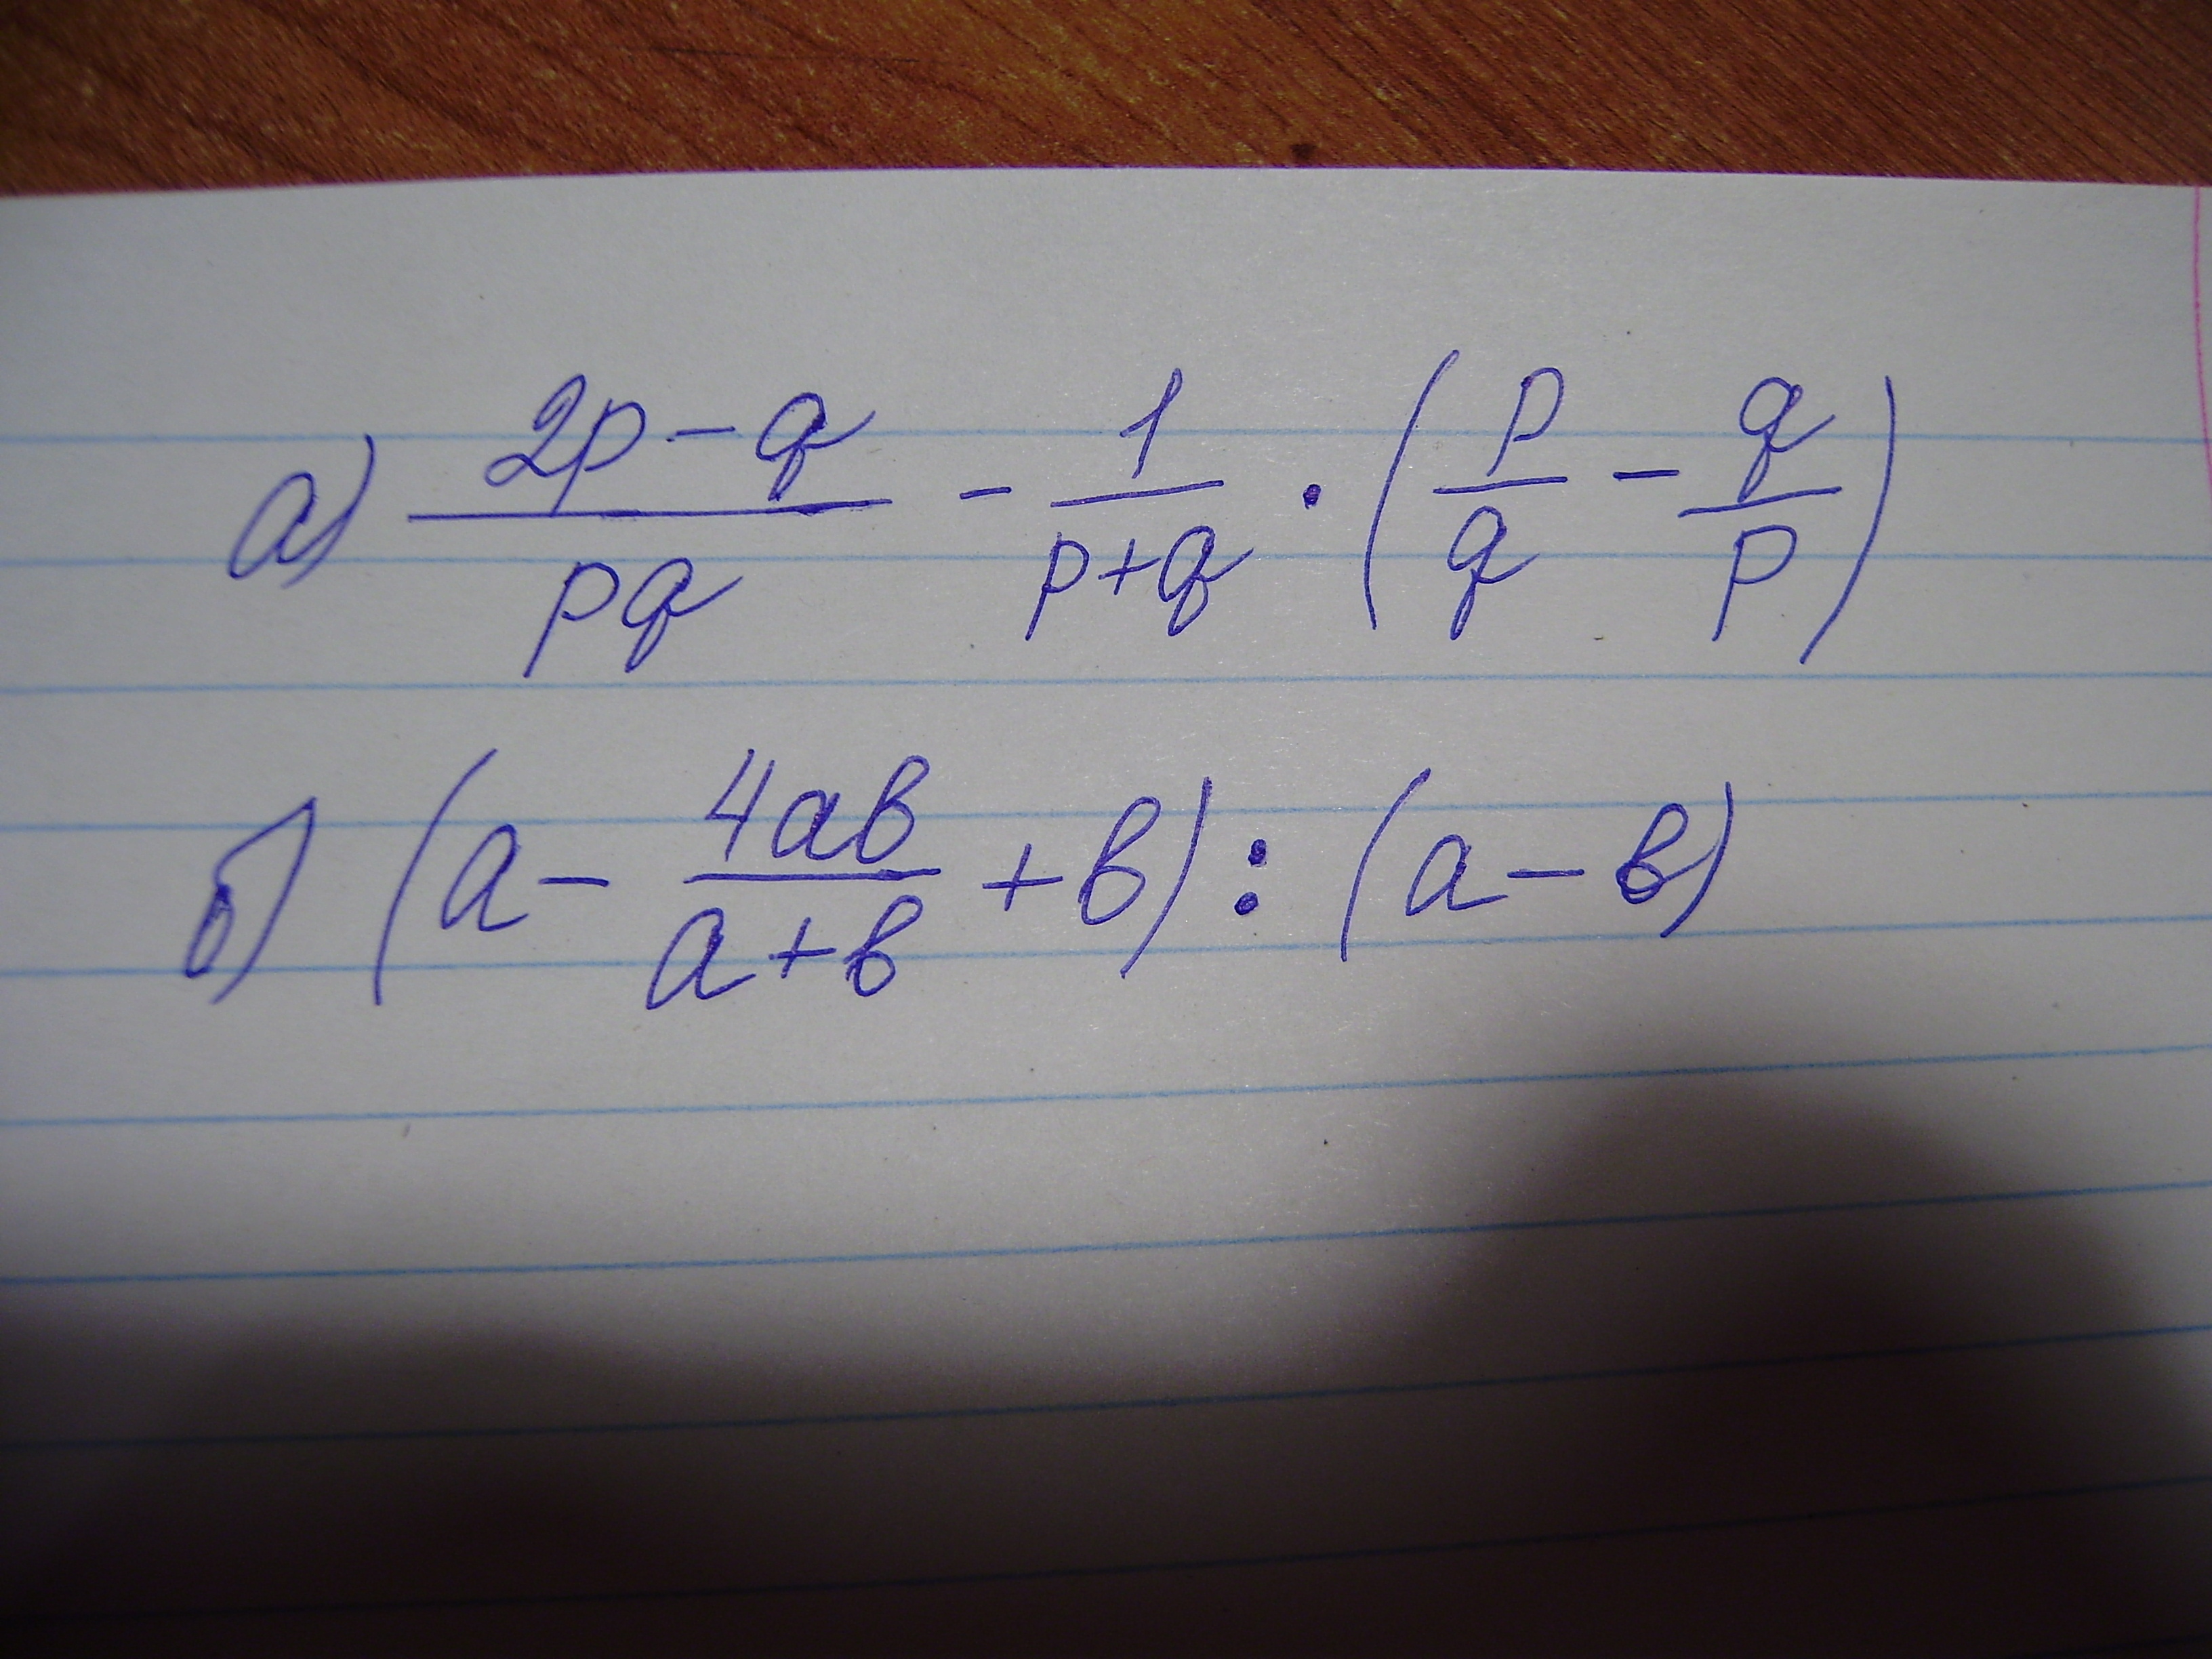 а) (2p-q)/(pq) - 1/(p+q) · (p/q - q/p)
б) (a - (4ab)/(a+b) + b) : (a-b)